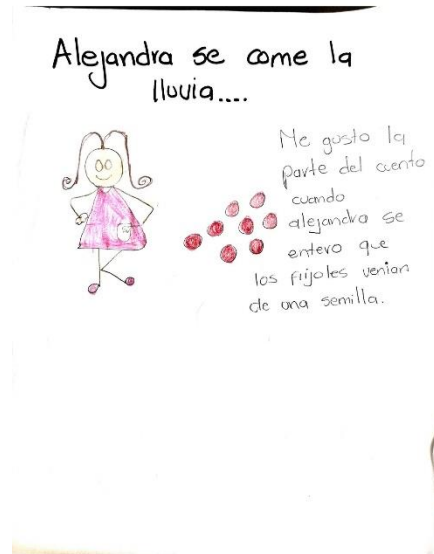 Alejandra se come la
lluvia....
Me gusto la
parte del cuento
cuando
alejandra se
entero que
los frijoles venian
de una semilla.